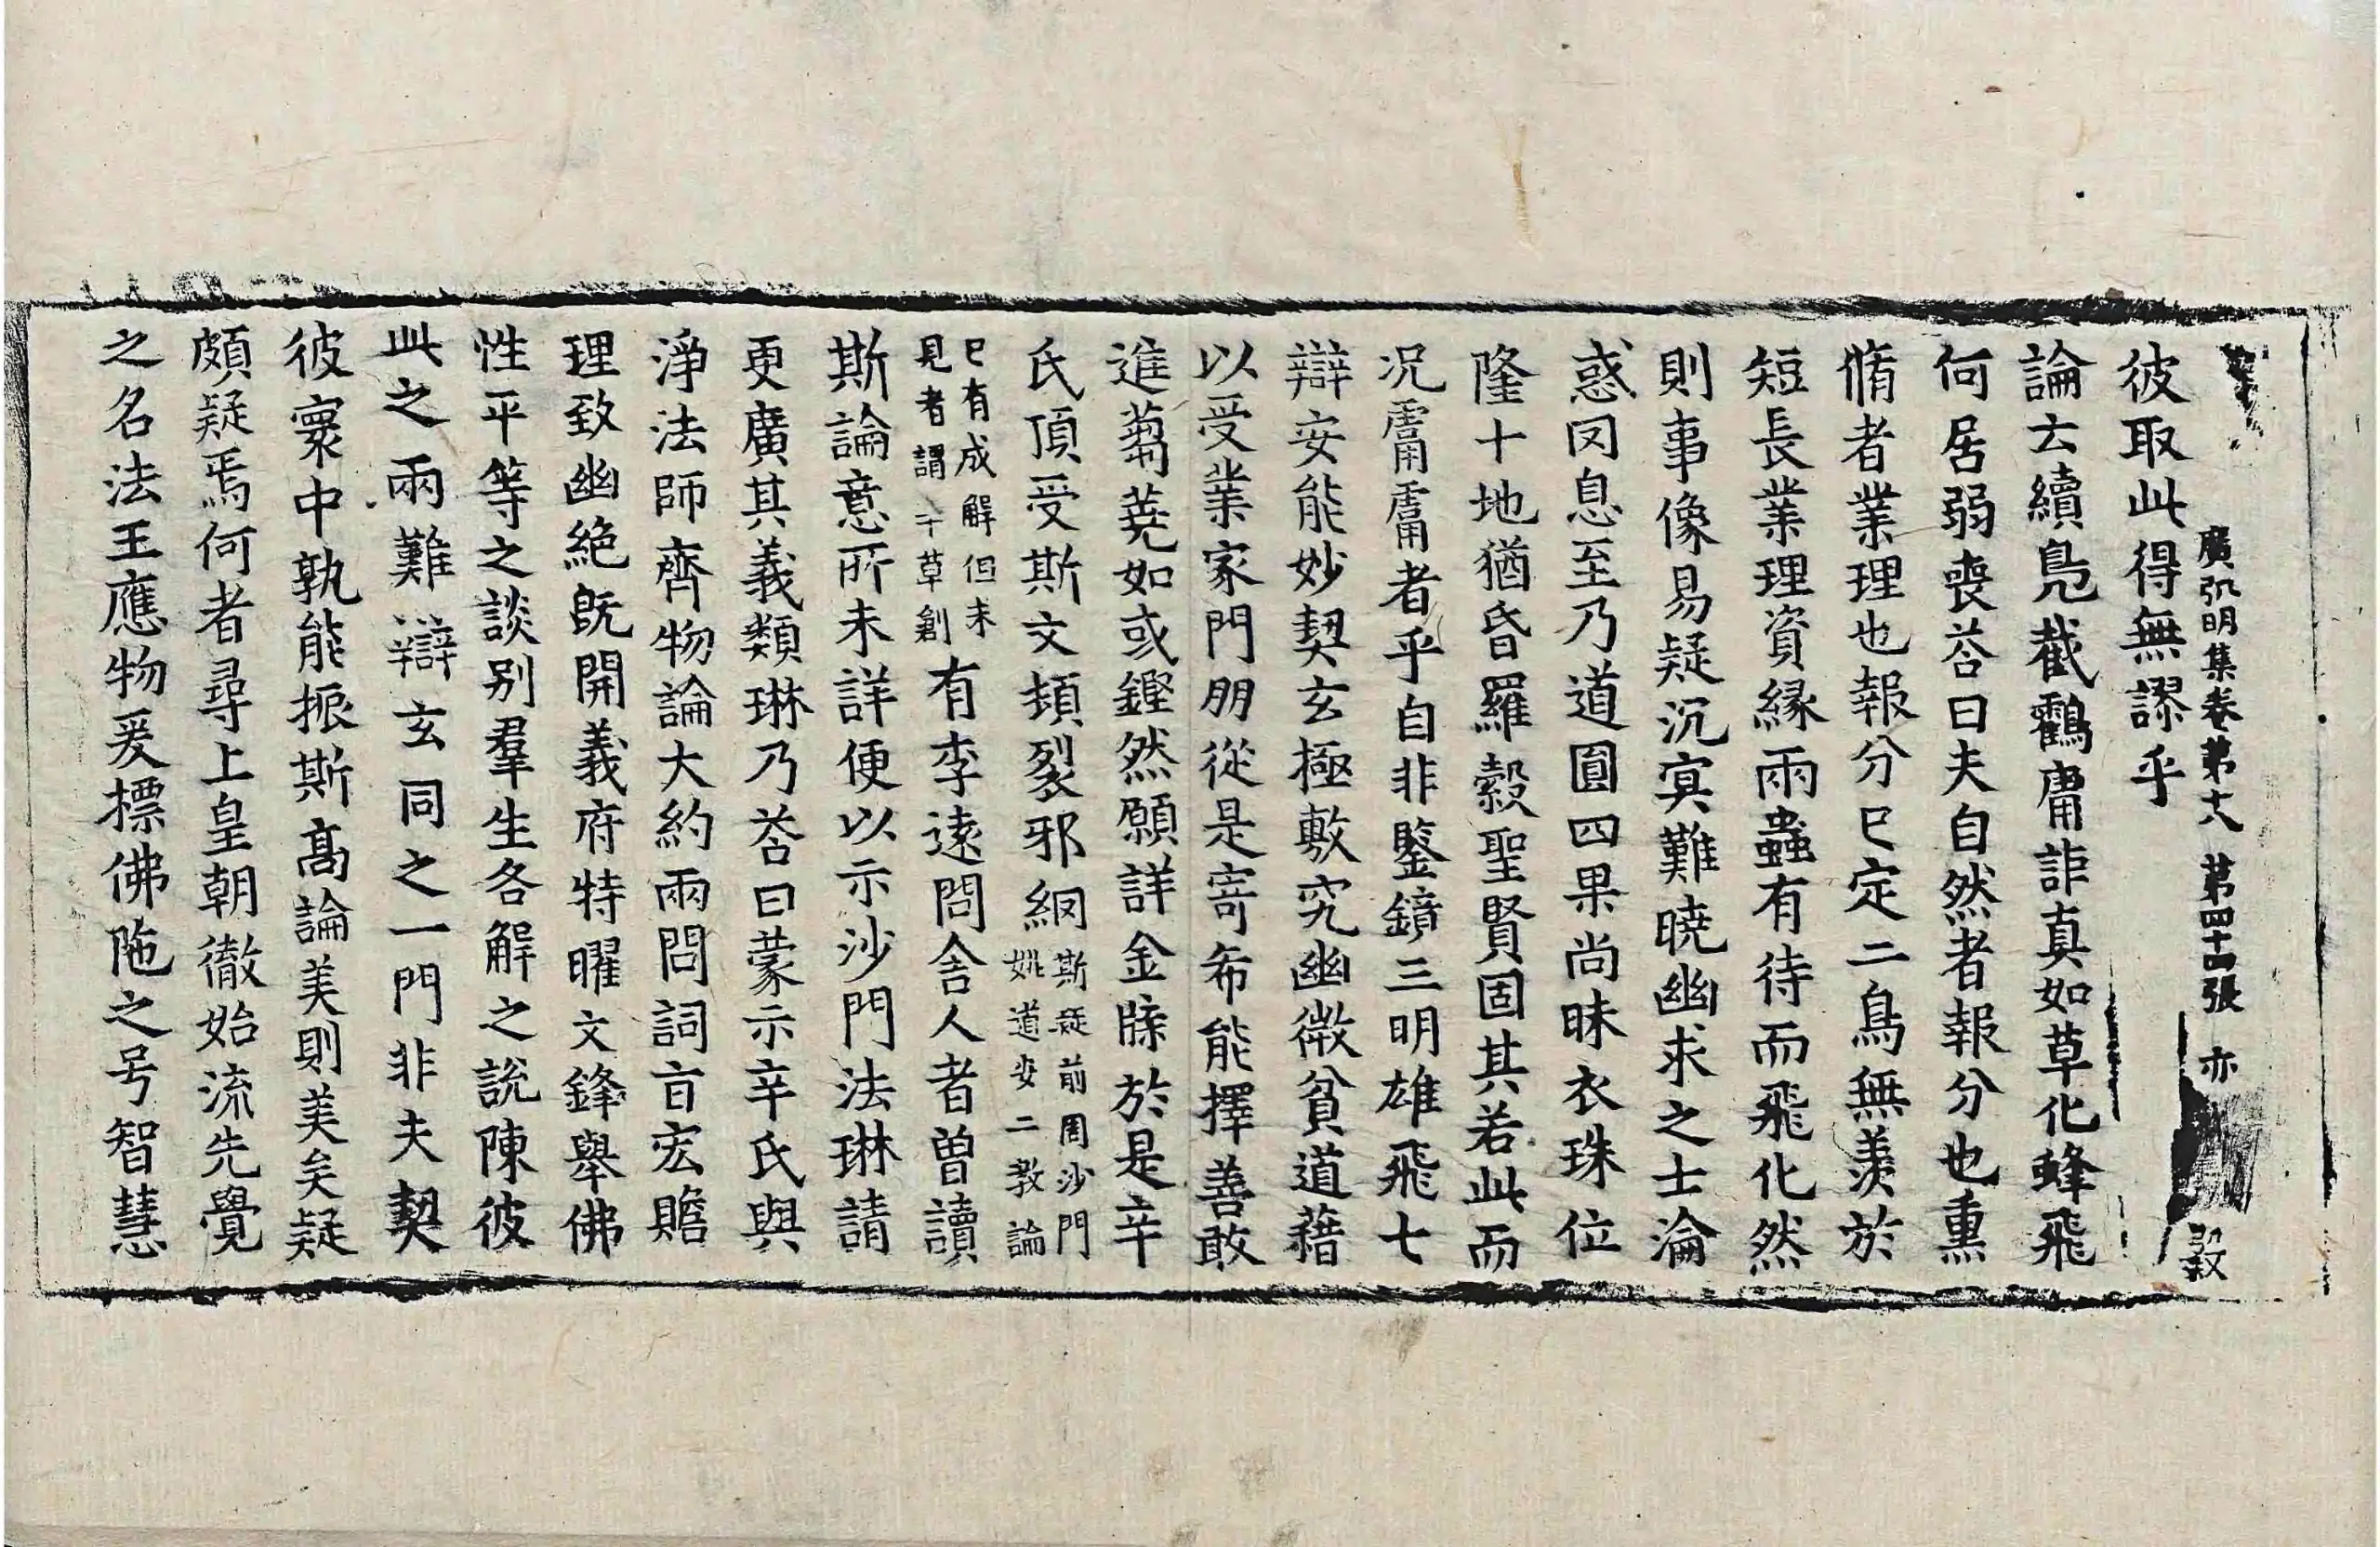 廣弘明集卷第十八 第四十四張 亦
彼取此得無謬乎
論云續鳧截鸖庸詎真如草化蜂飛
何居弱喪荅曰夫自然者報分也熏
脩者業理也報分已定二鳥無羨於
短長業理資緣兩蟲有待而飛化然
則事像易疑沉冥難曉幽求之士淪
惑罔息至乃道圓四果尚昧衣珠位
隆十地猶昏羅縠聖賢固其若此而
况庸庸者乎自非鑒鏡三明雄飛七
辯安能妙契玄極敷究幽微貧道藉
以受業家門朋從是寄希能擇善敢
進蒭蕘如或鏗然願詳金牒於是辛
氏頂受斯文頻裂邪網斯疑前周沙門
姚道安二教論
已有成解但未
見者謂于草創有李遠問舍人者曽讀
斯論意所未詳便以示沙門法琳請
更廣其義類琳乃荅曰蒙示辛氏與
淨法師齊物論大約兩問詞旨宏贍
理致幽絶旣開義府特曜文鋒舉佛
性平等之談別羣生各解之說陳彼
此之兩難辯玄同之一門非夫契
彼寰中孰能振斯髙論美則美矣疑
頗疑焉何者尋上皇朝徹始流先覺
之名法王應物爰摽佛陁之号智慧